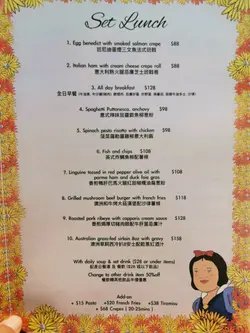 Set Lunch
1. Egg benedict with smoked salmon crepe $88
班尼迪蛋煙三文魚法式班戟
2. Italian ham with cream cheese crepe roll $88
意大利熟火腿忌廉芝士班戟卷
3. All day breakfast $128
全日早餐
4. Spaghetti Puttanesca, anchovy $98
意式辣味茄醬銀魚柳意粉
5. Spinach pesto risotto with chicken $98
菠菜醬雞意大利飯
6. Fish and chips $108
英式炸魚柳配薯條
7. Linguine tossed in red pepper olive oil with $118
parma ham and duck foie gras
8. Grilled mushroom beef burger with french fries $118
澳洲和牛烤大菇漢堡配炸薯條
9. Roasted pork ribeye with capparis cream sauce $128
10. Australian grass-fed sirloin 8oz with gravy $138
With daily soup & set drink ($28 or under items)
Change to other drink item 50%off
Add-on
+ $15 Pasta +$20 French Fries +$38 Tiramisu
+ $68 Crepes ( 20-25mins )